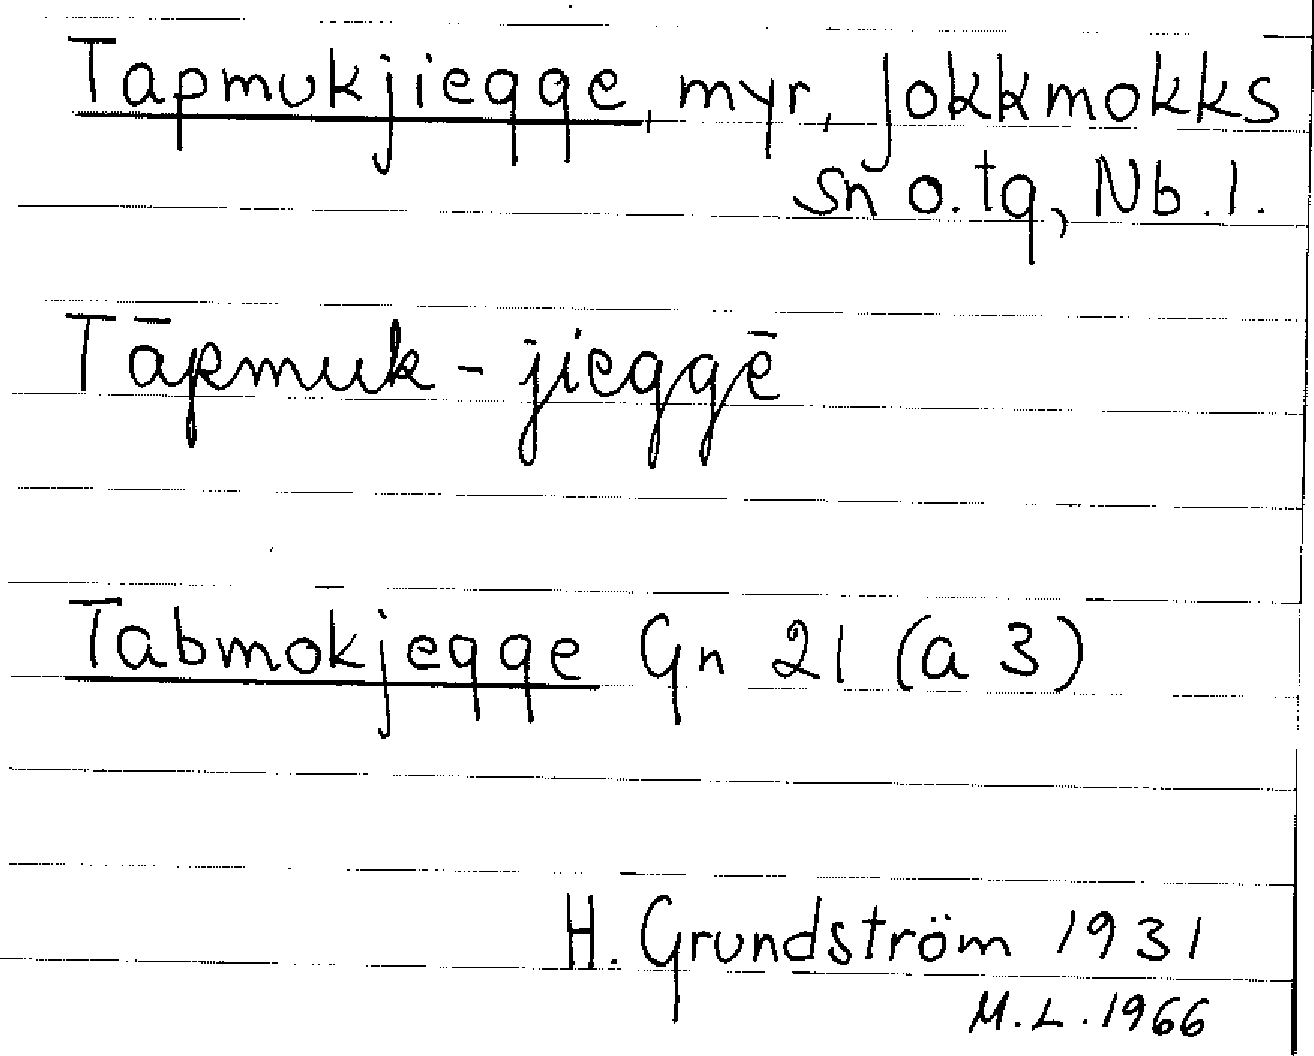 Tapmukjiegge, myr, Jokkmokks
sn o. tg, Nb. l.
Tāpmuk - jieggē
Tabmokjegge Gn 21 (a 3)
H. Grundström 1931
M. L. 1966